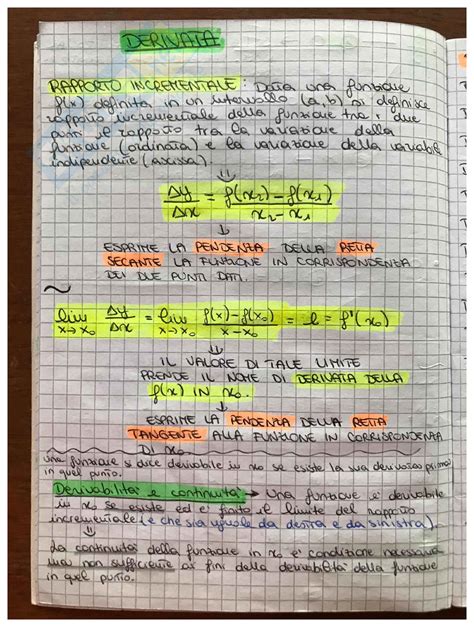 DERIVATA
RAPPORTO INCREMENTALE: Data una funzione
f(x) definita in un intervallo (a,b) si definisce
rapporto incrementale della funzione tra i due
punti il rapporto tra la variazione della
funzione (ordinata) e la variazione della variabile
indipendente (ascissa).
⇓
Δy/Δx = f(x₂)-f(x₁)/x₂-x₁
↓
ESPRIME LA PENDENZA DELLA RETTA
SECANTE LA FUNZIONE IN CORRISPONDENZA
DEI DUE PUNTI DATI.
~
lim x→x₀ Δy/Δx = lim x→x₀ f(x)-f(x₀)/x-x₀ = l = f'(x₀)
⇓
IL VALORE DI TALE LIMITE
PRENDE IL NOME DI DERIVATA DELLA
f(x) IN x₀.
↓
ESPRIME LA PENDENZA DELLA RETTA
TANGENTE ALLA FUNZIONE IN CORRISPONDENZA
DI x₀
Una funzione si dice derivabile in x₀ se esiste la sua derivata prima
in quel punto.
Derivabilità e continuità → Una funzione è derivabile
in x₀ se esiste ed e' finito il limite del rapporto
incrementale (e che sia uguale da destra e da sinistra).
⇓
La continuità della funzione in x₀ e' condizione necessaria
ma non sufficiente ai fini della derivabilità della funzione
in quel punto.